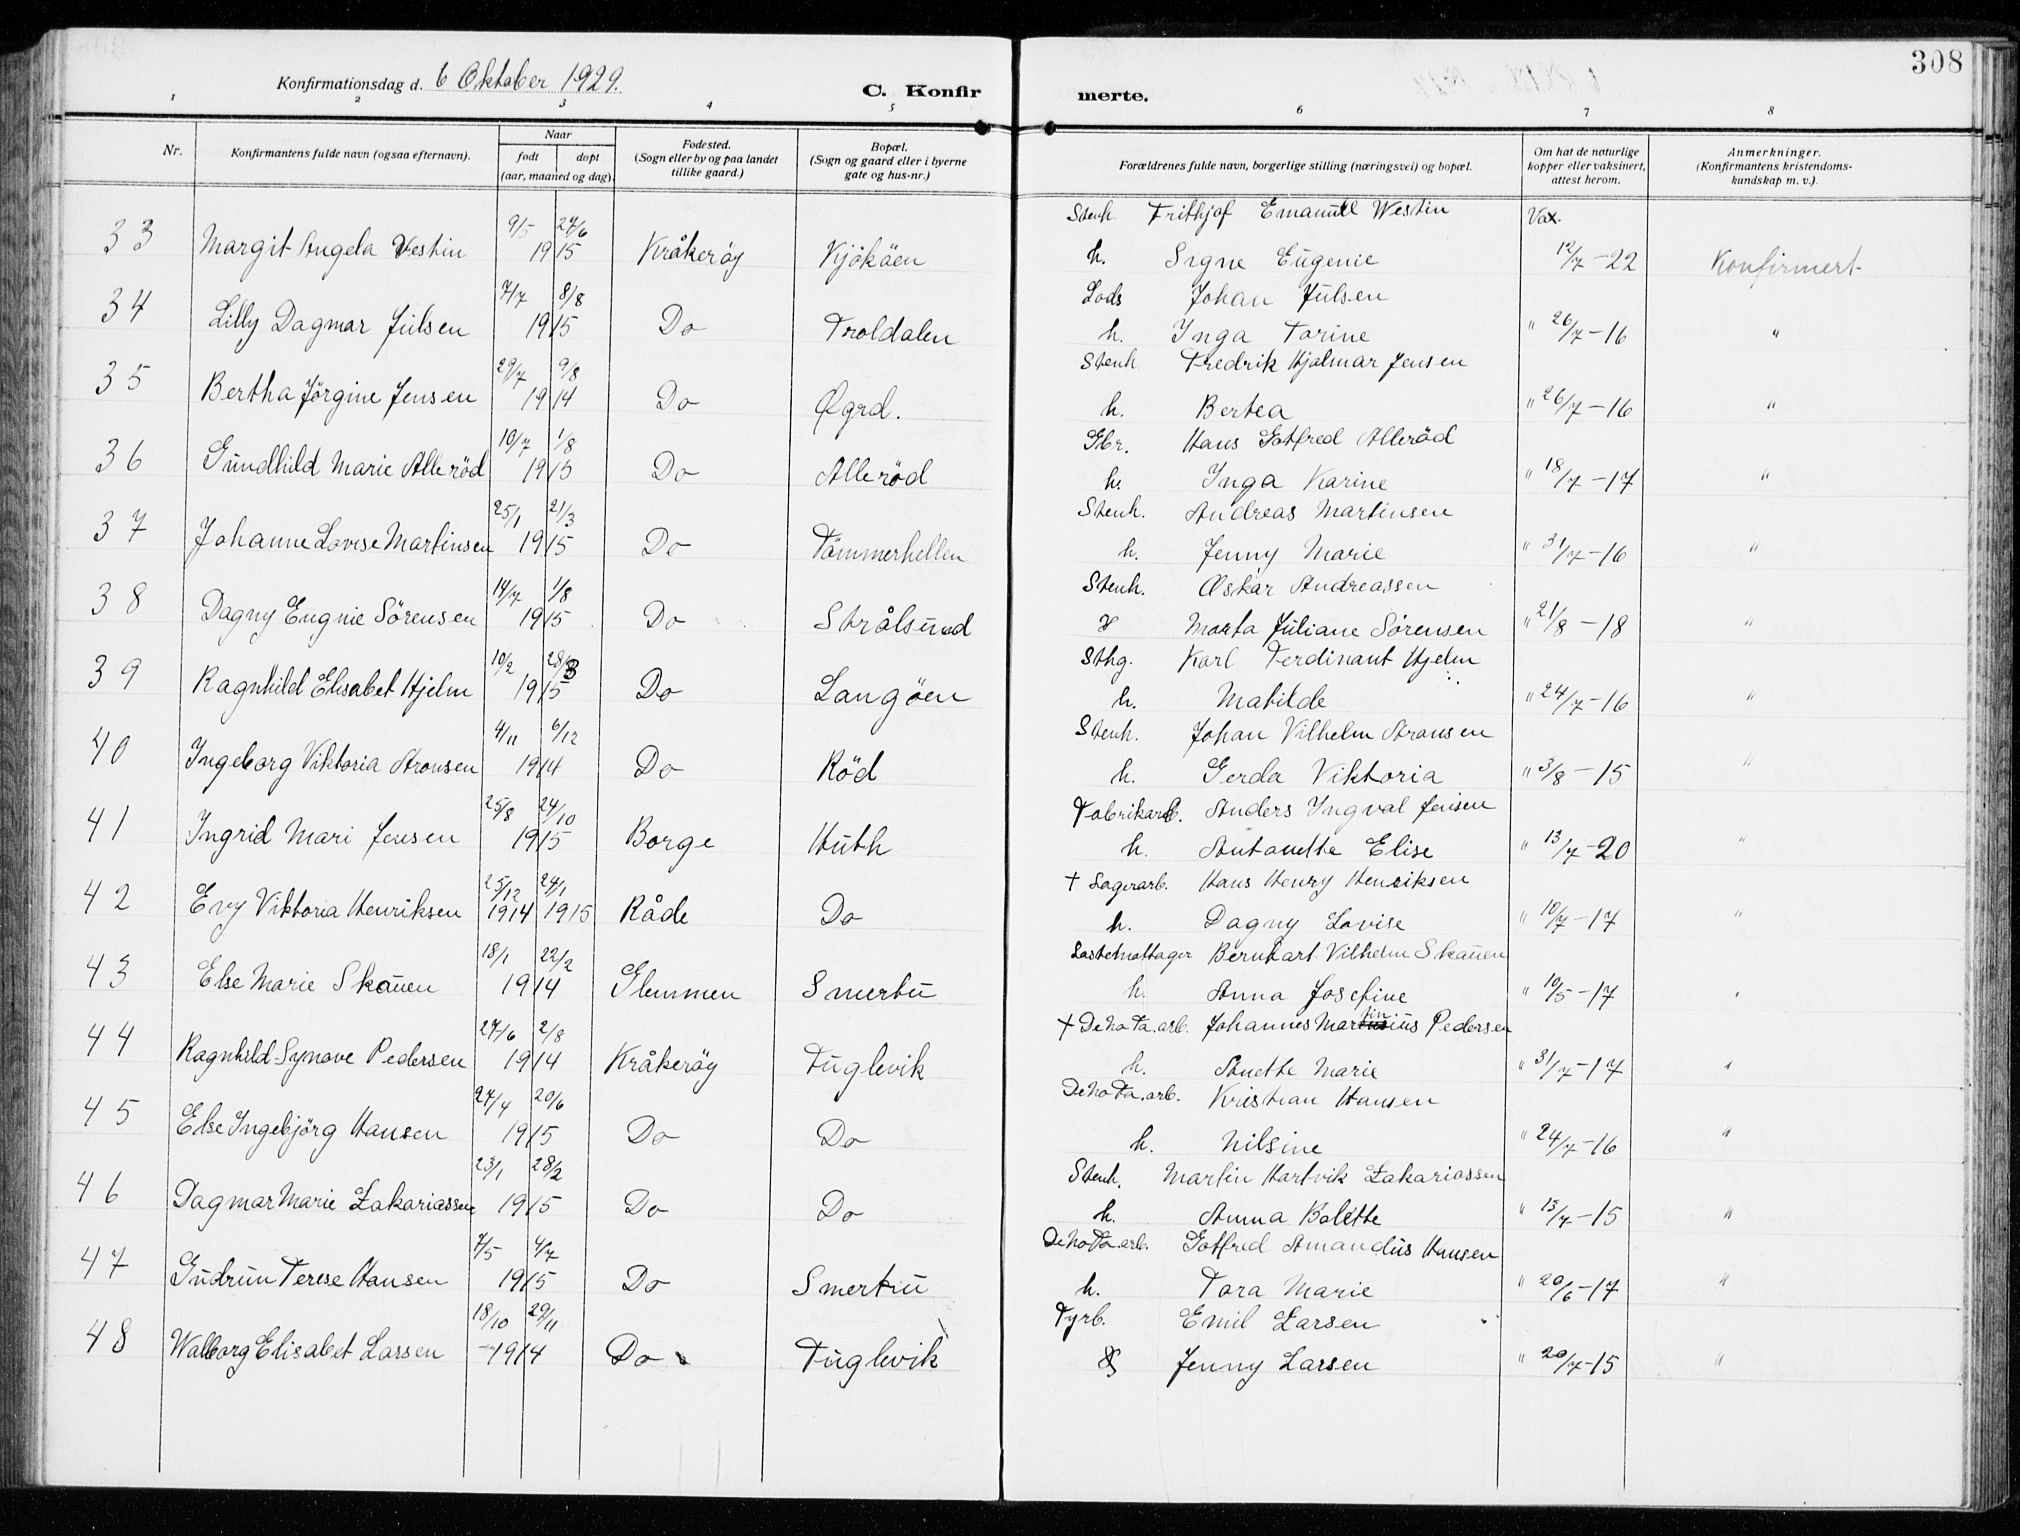 308
Konfirmationsdag d. 6 Oktober 1929.
C. Konfirmerte.
1 2 3 4 5 6 7 8
Nr. Konfirmantens fulde navn (ogsaa efternavn). Naar født døpt (aar, maaned og dag). Fødested. (Sogn eller by og paa landet tillike gaard.) Bopæl. (Sogn og gaard eller i byerne gate og hus-nr.) Forældrenes fulde navn, borgerlige stilling (næringsvei) og bopæl. Om hat de naturlige kopper eller vaksinert, attest herom. Anmerkninger. (Konfirmantens kristendomskundskap m. v.).
9/5 27/6 Stenh. Frithjof Emanuel Westin Vax.
33 Margit Angela Vestin 1915 Kråkeröy Kjököen h. Signe Eugenie 12/7-22 Konfirmert
7/7 8/8 Lods Johan Julsen
34 Lilly Dagmar Julsen 1915 Do Troldalen h. Inga Torine " 26/7-16 "
29/7 9/8 Stenh. Fredrik Hjalmar Jensen
35 Bertha Jörgine Jensen 1914 Do Øgrd. h. Bertea " 26/7-16 "
10/7 1/8 Gbr. Hans Gotfred Alleröd
36 Gundhild Marie Alleröd 1915 Do Alleröd h. Inga Karine " 18/7-17 "
25/1 21/3 Stenh. Andreas Martinsen
37 Johanne Lovise Martinsen 1915 Do Tömmerhellen h. Jenny Marie " 31/7-16 "
14/7 1/8 Stenh. Oskar Andreassen
38 Dagny Eugnie Sörensen 1915 Do Strålsund Marta Juliane Sörensen " 21/8-18 "
10/2 28/3 Sthg. Karl Ferdinant Hjelm
39 Ragnhild Elisabet Hjelm 1915 Do Langöen h. Matilde " 24/7-16 "
4/11 6/12 Stenh. Johan Vilhelm Aronsen
40 Ingeborg Viktoria Aronsen 1914 Do Röd h. Gerda Viktoria " 3/8-15 "
25/8 24/10 Fabrikarb. Anders Ingval Jensen
41 Ingrid Mari Jensen 1915 Borge Huth h. Antonette Elise " 13/7-20 "
25/12 24/1 + Lagerarb. Hans Henry Henriksen
42 Evy Viktoria Henriksen 1914 1915 Råde Do h. Dagny Lovise " 10/7-17 "
18/1 22/2 Lastemottager Bernhart Vilhelm Skauen
43 Else Marie Skauen 1914 Glemmen Smertu h. Anna Josefine " 10/5-17 "
27/6 2/8 + DeNoFa.arb. Johannes Martinius Pedersen
44 Ragnhild Synove Pedersen 1914 Kråkeröy Fuglevik h. Anette Marie " 31/7-17 "
27/4 20/6 DeNoFa.arb. Kristian Hansen
45 Else Ingebjörg Hansen 1915 Do Do h. Nilsine " 24/7-16 "
23/1 28/2 Stenh. Martin Hartvik Zakariassen
46 Dagmar Marie Zakariassen 1915 Do Do h. Anna Bolette " 13/7-15 "
7/5 4/7 DeNoFa.arb. Gotfred Amandus Hansen
47 Gudrun Terese Hansen 1915 Do Smertu h. Tora Marie " 20/6-17 "
18/10 29/11 Fyrb. Emil Larsen
48 Walborg Elisabet Larsen 1914 Do Fuglevik Jenny Larsen " 20/7-15 "